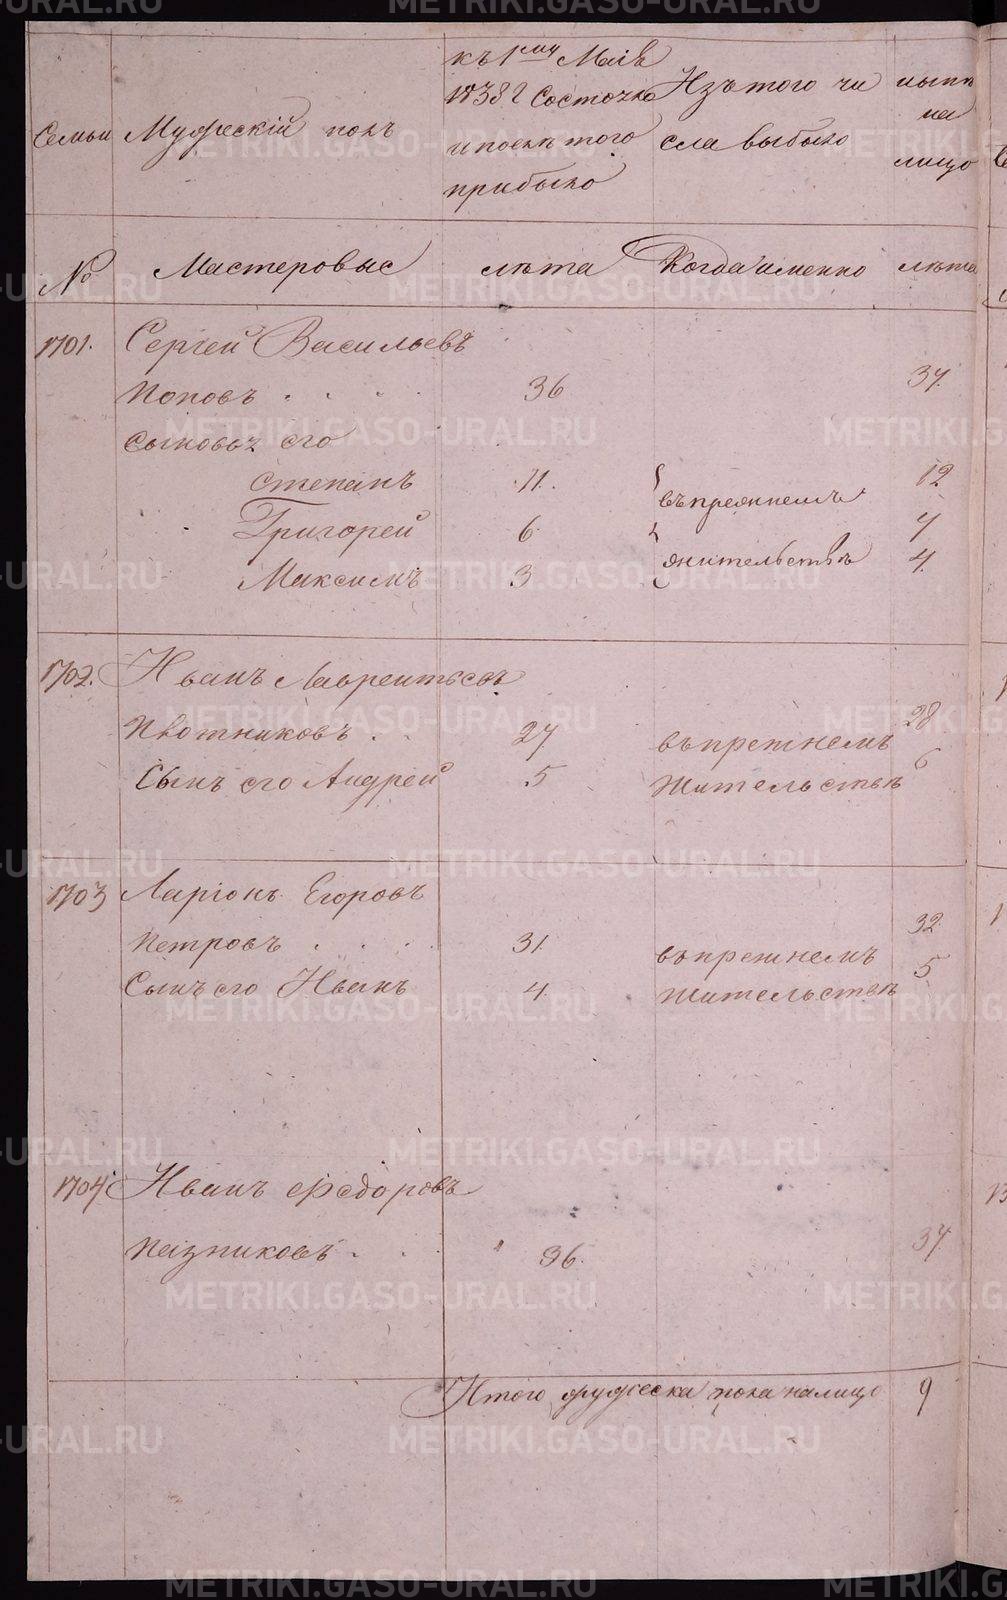 Семьи Мужескій полъ
къ 1му Маія
1838 г состояло
и после того
прибыло
Изъ того чи
сла выбыло
ныне
на
лицо
№ Мастеровые лѣта Когда именно лѣта
1701. Сергіей Васильевъ
Поповъ 36 37.
Сыновья его
Степанъ 11. 12
въ прежнемъ
Григорей 6. 7
жительствѣ
Максимъ 3 4.
1702. Иванъ Лаврентьевъ
Плотниковъ 27 въ прежнемъ 28
Сынъ его Андрей 5 жительствѣ 6
1703 Ларіонъ Егоровъ
Петровъ 31. въ прежнемъ 32
Сынъ его Иванъ 4. жительствѣ 5
1704 Иванъ Федоровъ
Пазниковъ 36. 37
Итого мужеска пола налицо 9
METRIKI.GASO-URAL.RU